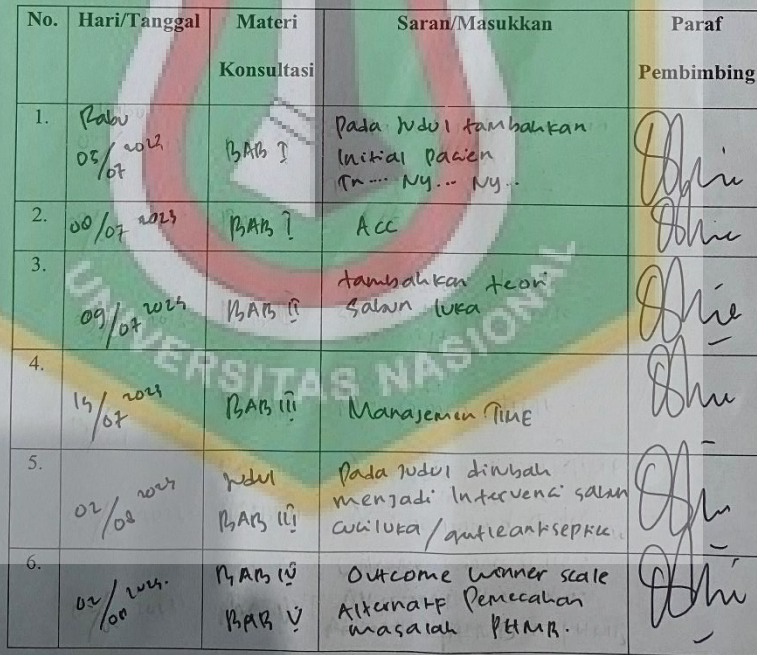 No. Hari/Tanggal Materi Konsultasi Saran/Masukkan Paraf Pembimbing
1. Rabu 05/07 2023 BAB I Pada Judul tambahkan
Initial Pasien
Tn.... Ny... Ny..
2. 2023 BAB I Acc
3. 09/07 2023 BAB II tambahkan teori
Sabun luka
4. /07 2023 BAB III Manajemen TIME
5. 02/08 2023 Judul Pada Judul dirubah
BAB III menjadi Intervensi sabun
cuci luka /
6. 02/ 2023. BAB IV Outcome winner scale
BAB V Alternatif Pemecahan
masalah PHMB.
UNIVERSITAS NASIONAL